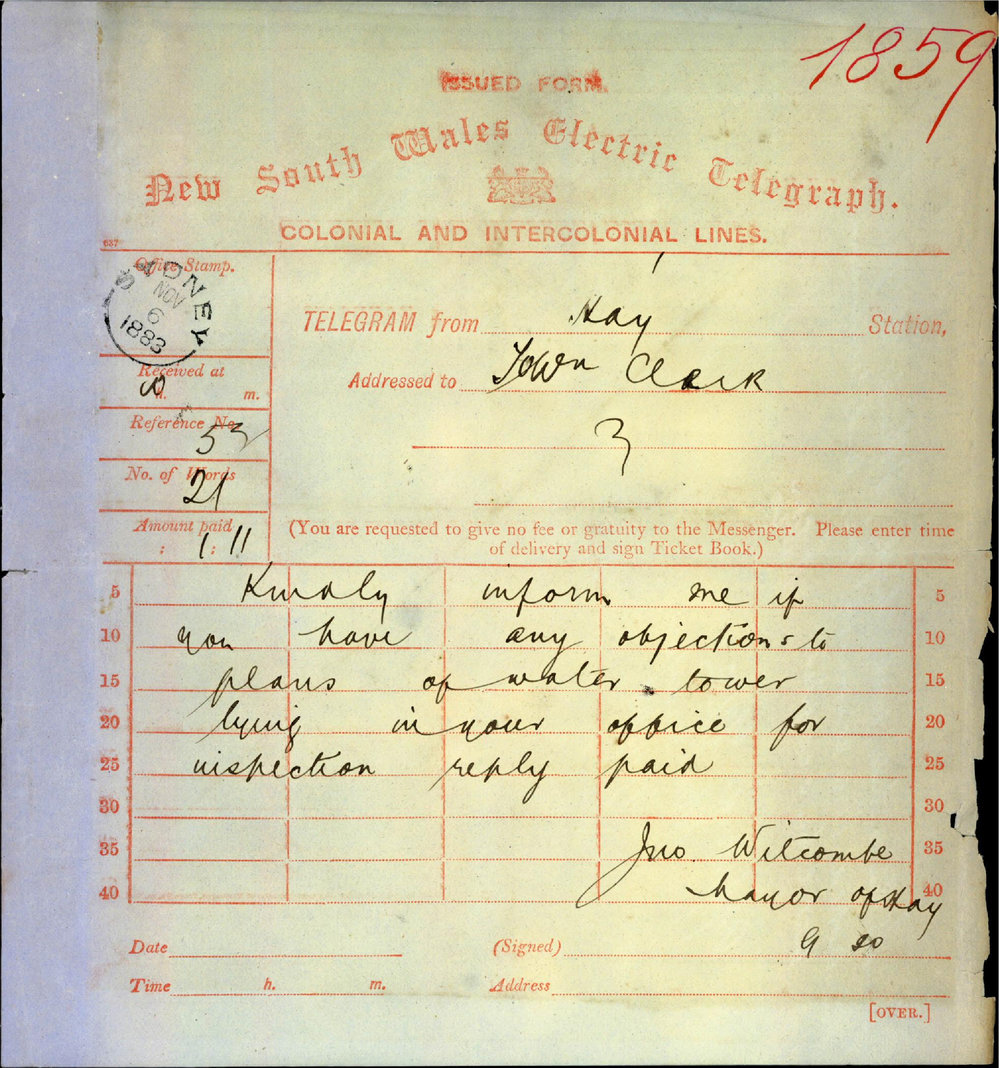 1859
ISSUED FORM.
New South Wales Electric Telegraph.
COLONIAL AND INTERCOLONIAL LINES.
687
Office Stamp.
SYDNEY
NOV
6
1883
TELEGRAM from Hay Station,
Received at
m.
Addressed to Town Clerk
Reference No.
53
No. of Words
21
Amount paid
: 1 : 11
(You are requested to give no fee or gratuity to the Messenger. Please enter time
of delivery and sign Ticket Book.)
5 Kindly inform me if 5
10 you have any objections to 10
15 plans of water tower 15
20 lying in your office for 20
25 inspection reply paid 25
30 30
35 Jno. Witcombe 35
40 Mayor of Hay 40
Date (Signed)
Time h. m. Address
[OVER.]